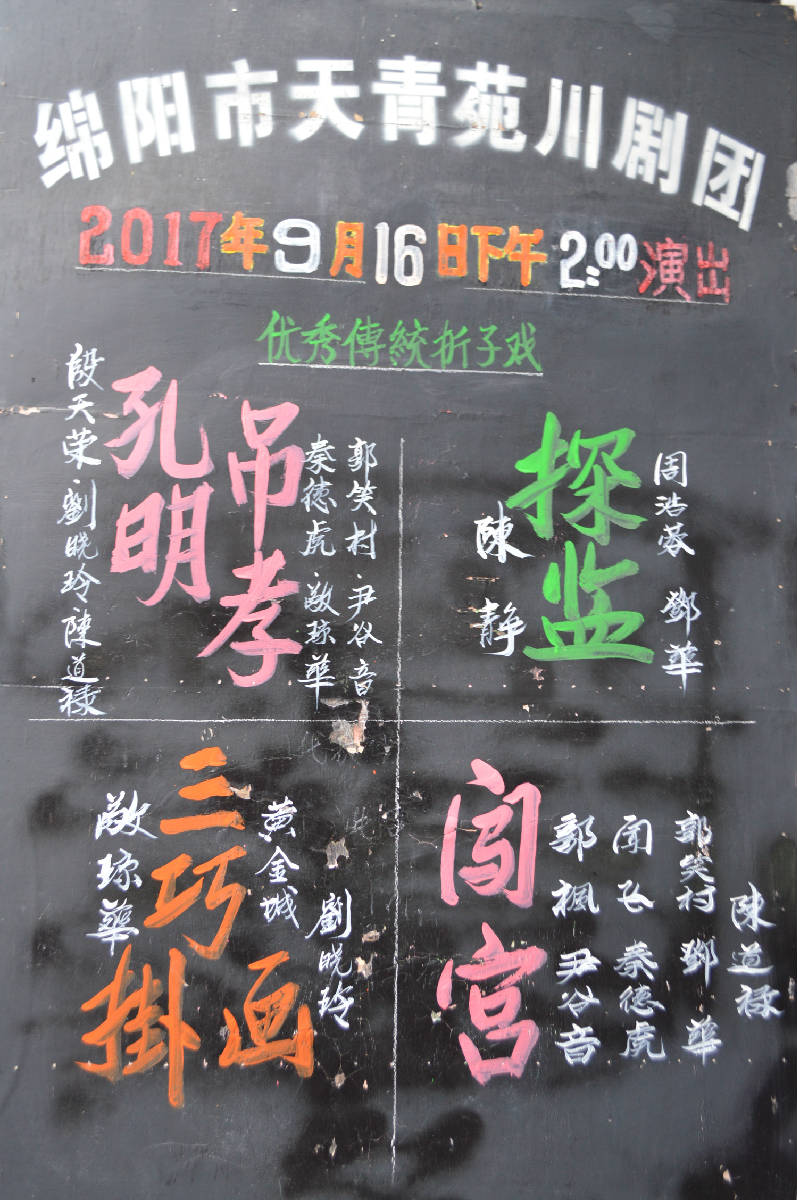 绵阳市天青苑川剧团
2017年9月16日下午2:00演出
优秀傳統折子戏
孔明
吊孝
段天荣·劉晓玲陳道禄
秦德虎·敵琼華
郭笑村·尹谷音
探监
陳静
周浩蓉 鄧華
三巧
掛画
敵琼華
黄金城
劉晓玲
闯宫
郭楓 尹谷音
闻飞 秦德虎
郭笑村 鄧華
陳道禄